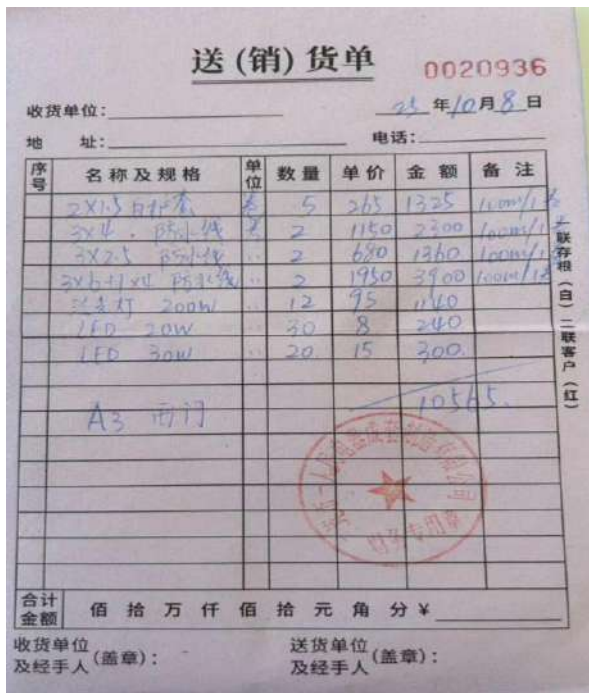 送(销)货单
0020936
收货单位:
25年10月8日
地 址:
电话:
序号 名称及规格 单位 数量 单价 金额 备注
2X1.5 白护套 卷 5 265 1325 100m/1卷
3X4 防水线 卷 2 1150 2300 100m/1卷
3X2.5 防水线 〃 2 680 1360 100m/1卷
3X6+1X4 防水线 〃 2 1950 3900 100m/1卷
灯 200W 〃 12 95 1140
LED 20W 〃 30 8 240
LED 30W 〃 20 15 300.
10565.
A3 西门
财务专用章
合计金额 佰拾万仟佰拾元角分¥
收货单位及经手人(盖章):
送货单位及经手人(盖章):
联存根(白)二联客户(红)